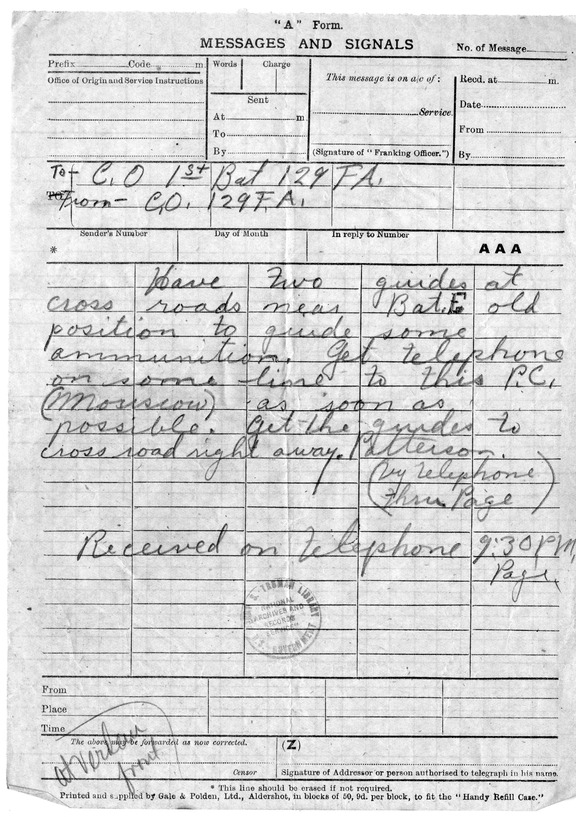 "A" Form.
MESSAGES AND SIGNALS
No. of Message
Prefix Code m
Words Charge
This message is on a/c of :
Recd. at m.
Office of Origin and Service Instructions
Sent
At m.
To
By
Service.
(Signature of "Franking Officer.")
Date
From
By
To- C.O 1st Bat 129 F.A.
From- C.O. 129 F.A.
Sender's Number Day of Month In reply to Number
* AAA
Have two guides at
cross roads near Bat. E old
position to guide some
ammunition. Get telephone
on some line to this P.C.
as soon as
possible. Get the guides to
cross road right away. Patterson.
(by telephone
thru Page)
Received on telephone 9:30 PM,
Page.
TRUMAN LIBRARY
NATIONAL
ARCHIVES AND
RECORDS
SERVICE
GOVERNMENT
From
Place
Time
The above may be forwarded as now corrected. (Z)
at Verdun
front
Censor Signature of Addressor or person authorised to telegraph in his name.
* This line should be erased if not required.
Printed and supplied by Gale & Polden, Ltd., Aldershot, in blocks of 50, 9d. per block, to fit the "Handy Refill Case."